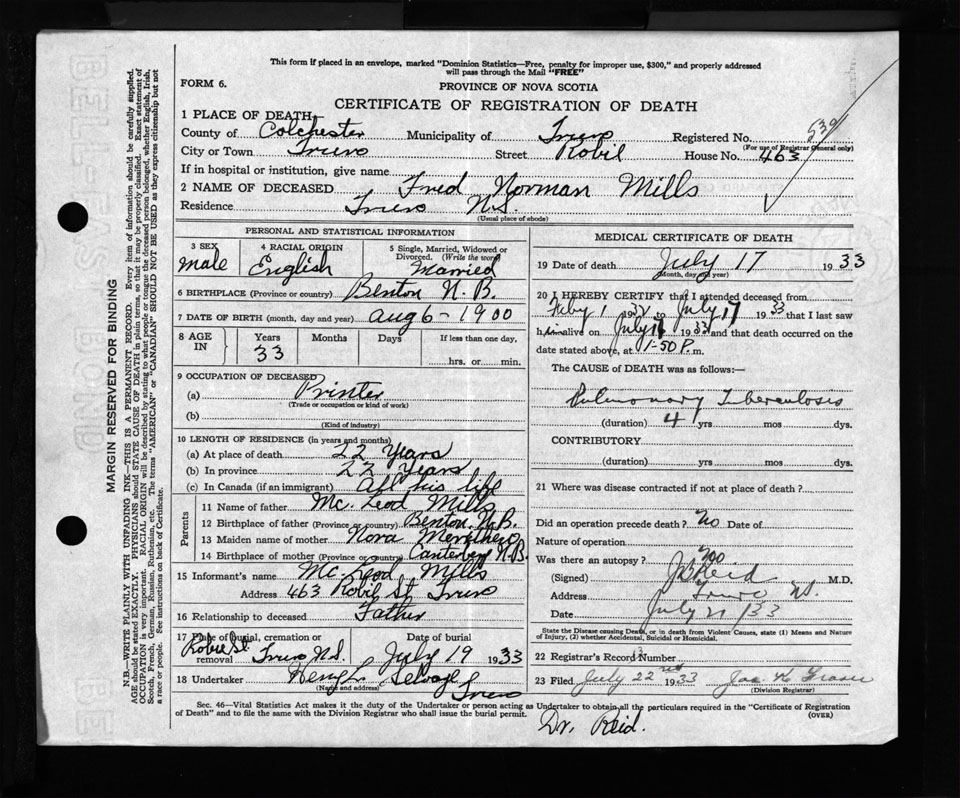 This form if placed in an envelope, marked "Dominion Statistics—Free, penalty for improper use, $300," and properly addressed
will pass through the Mail "FREE"
FORM 6.
PROVINCE OF NOVA SCOTIA
CERTIFICATE OF REGISTRATION OF DEATH
1 PLACE OF DEATH
County of Colchester Municipality of Truro Registered No. 539
(For use of Registrar General only)
City or Town Truro Street Robie House No. 463
If in hospital or institution, give name
2 NAME OF DECEASED Fred Norman Mills
Residence Truro N.S.
(Usual place of abode)
PERSONAL AND STATISTICAL INFORMATION
3 SEX 4 RACIAL ORIGIN 5 Single, Married, Widowed or Divorced. (Write the word)
male English Married
6 BIRTHPLACE (Province or country) Benton N.B.
7 DATE OF BIRTH (month, day and year) Aug 6 - 1900
8 AGE IN Years Months Days If less than one day,
33 hrs. or min.
9 OCCUPATION OF DECEASED
(a) Printer
(Trade or occupation or kind of work)
(b)
(Kind of industry)
10 LENGTH OF RESIDENCE (in years and months)
(a) At place of death 22 Years
(b) In province 22 Years
(c) In Canada (if an immigrant) All his life
Parents
11 Name of father Mc Leod Mills
12 Birthplace of father (Province or country) Benton N.B.
13 Maiden name of mother Nora
14 Birthplace of mother (Province or country) Canterbery N.B.
15 Informant's name Mc Leod Mills
Address 463 Robie St Truro
16 Relationship to deceased Father
17 Place of burial, cremation or removal Robie St. Truro N.S. Date of burial July 19 1933
18 Undertaker Selvage Truro
(Name and address)
MEDICAL CERTIFICATE OF DEATH
19 Date of death July 17 1933
(Month, day and year)
20 I HEREBY CERTIFY that I attended deceased from
Feby 1 to July 17 1933 that I last saw
him alive on July 1933 and that death occurred on
date stated above, at 1-50 P. m.
The CAUSE OF DEATH was as follows:—
Pulmonary Tuberculosis
(duration) 4 yrs mos dys.
CONTRIBUTORY
(duration) yrs mos dys.
21 Where was disease contracted if not at place of death?
Did an operation precede death? No Date of
Nature of operation
Was there an autopsy? no
(Signed) Reid M.D.
Address Truro NS.
Date July 21 / 33
State the Disease causing Death, or in death from Violent Causes, state (1) Means and Nature
of Injury, (2) whether Accidental, Suicidal or Homicidal.
22 Registrar's Record Number
23 Filed July 22nd 1933 Jas. K Fraser
(Division Registrar)
Sec. 46—Vital Statistics Act makes it the duty of the Undertaker or person acting as Undertaker to obtain all the particulars required in the "Certificate of Registration
of Death" and to file the same with the Division Registrar who shall issue the burial permit.
(OVER)
Dr. Reid.
MARGIN RESERVED FOR BINDING
N.B.—WRITE PLAINLY WITH UNFADING INK—THIS IS A PERMANENT RECORD. Every item of information should be carefully supplied.
AGE should be stated EXACTLY. PHYSICIANS should STATE CAUSE OF DEATH in plain terms, so that it may be properly classified. Exact statement of
OCCUPATION is very important. RACIAL ORIGIN will be described by stating to what people or tongue the deceased person belonged, whether English, Irish,
Scotch, French, German, Russian, Ruthenian, etc. The terms "AMERICAN" or "CANADIAN" SHOULD NOT BE USED as they express citizenship but not
a race or people. See instructions on back of Certificate.